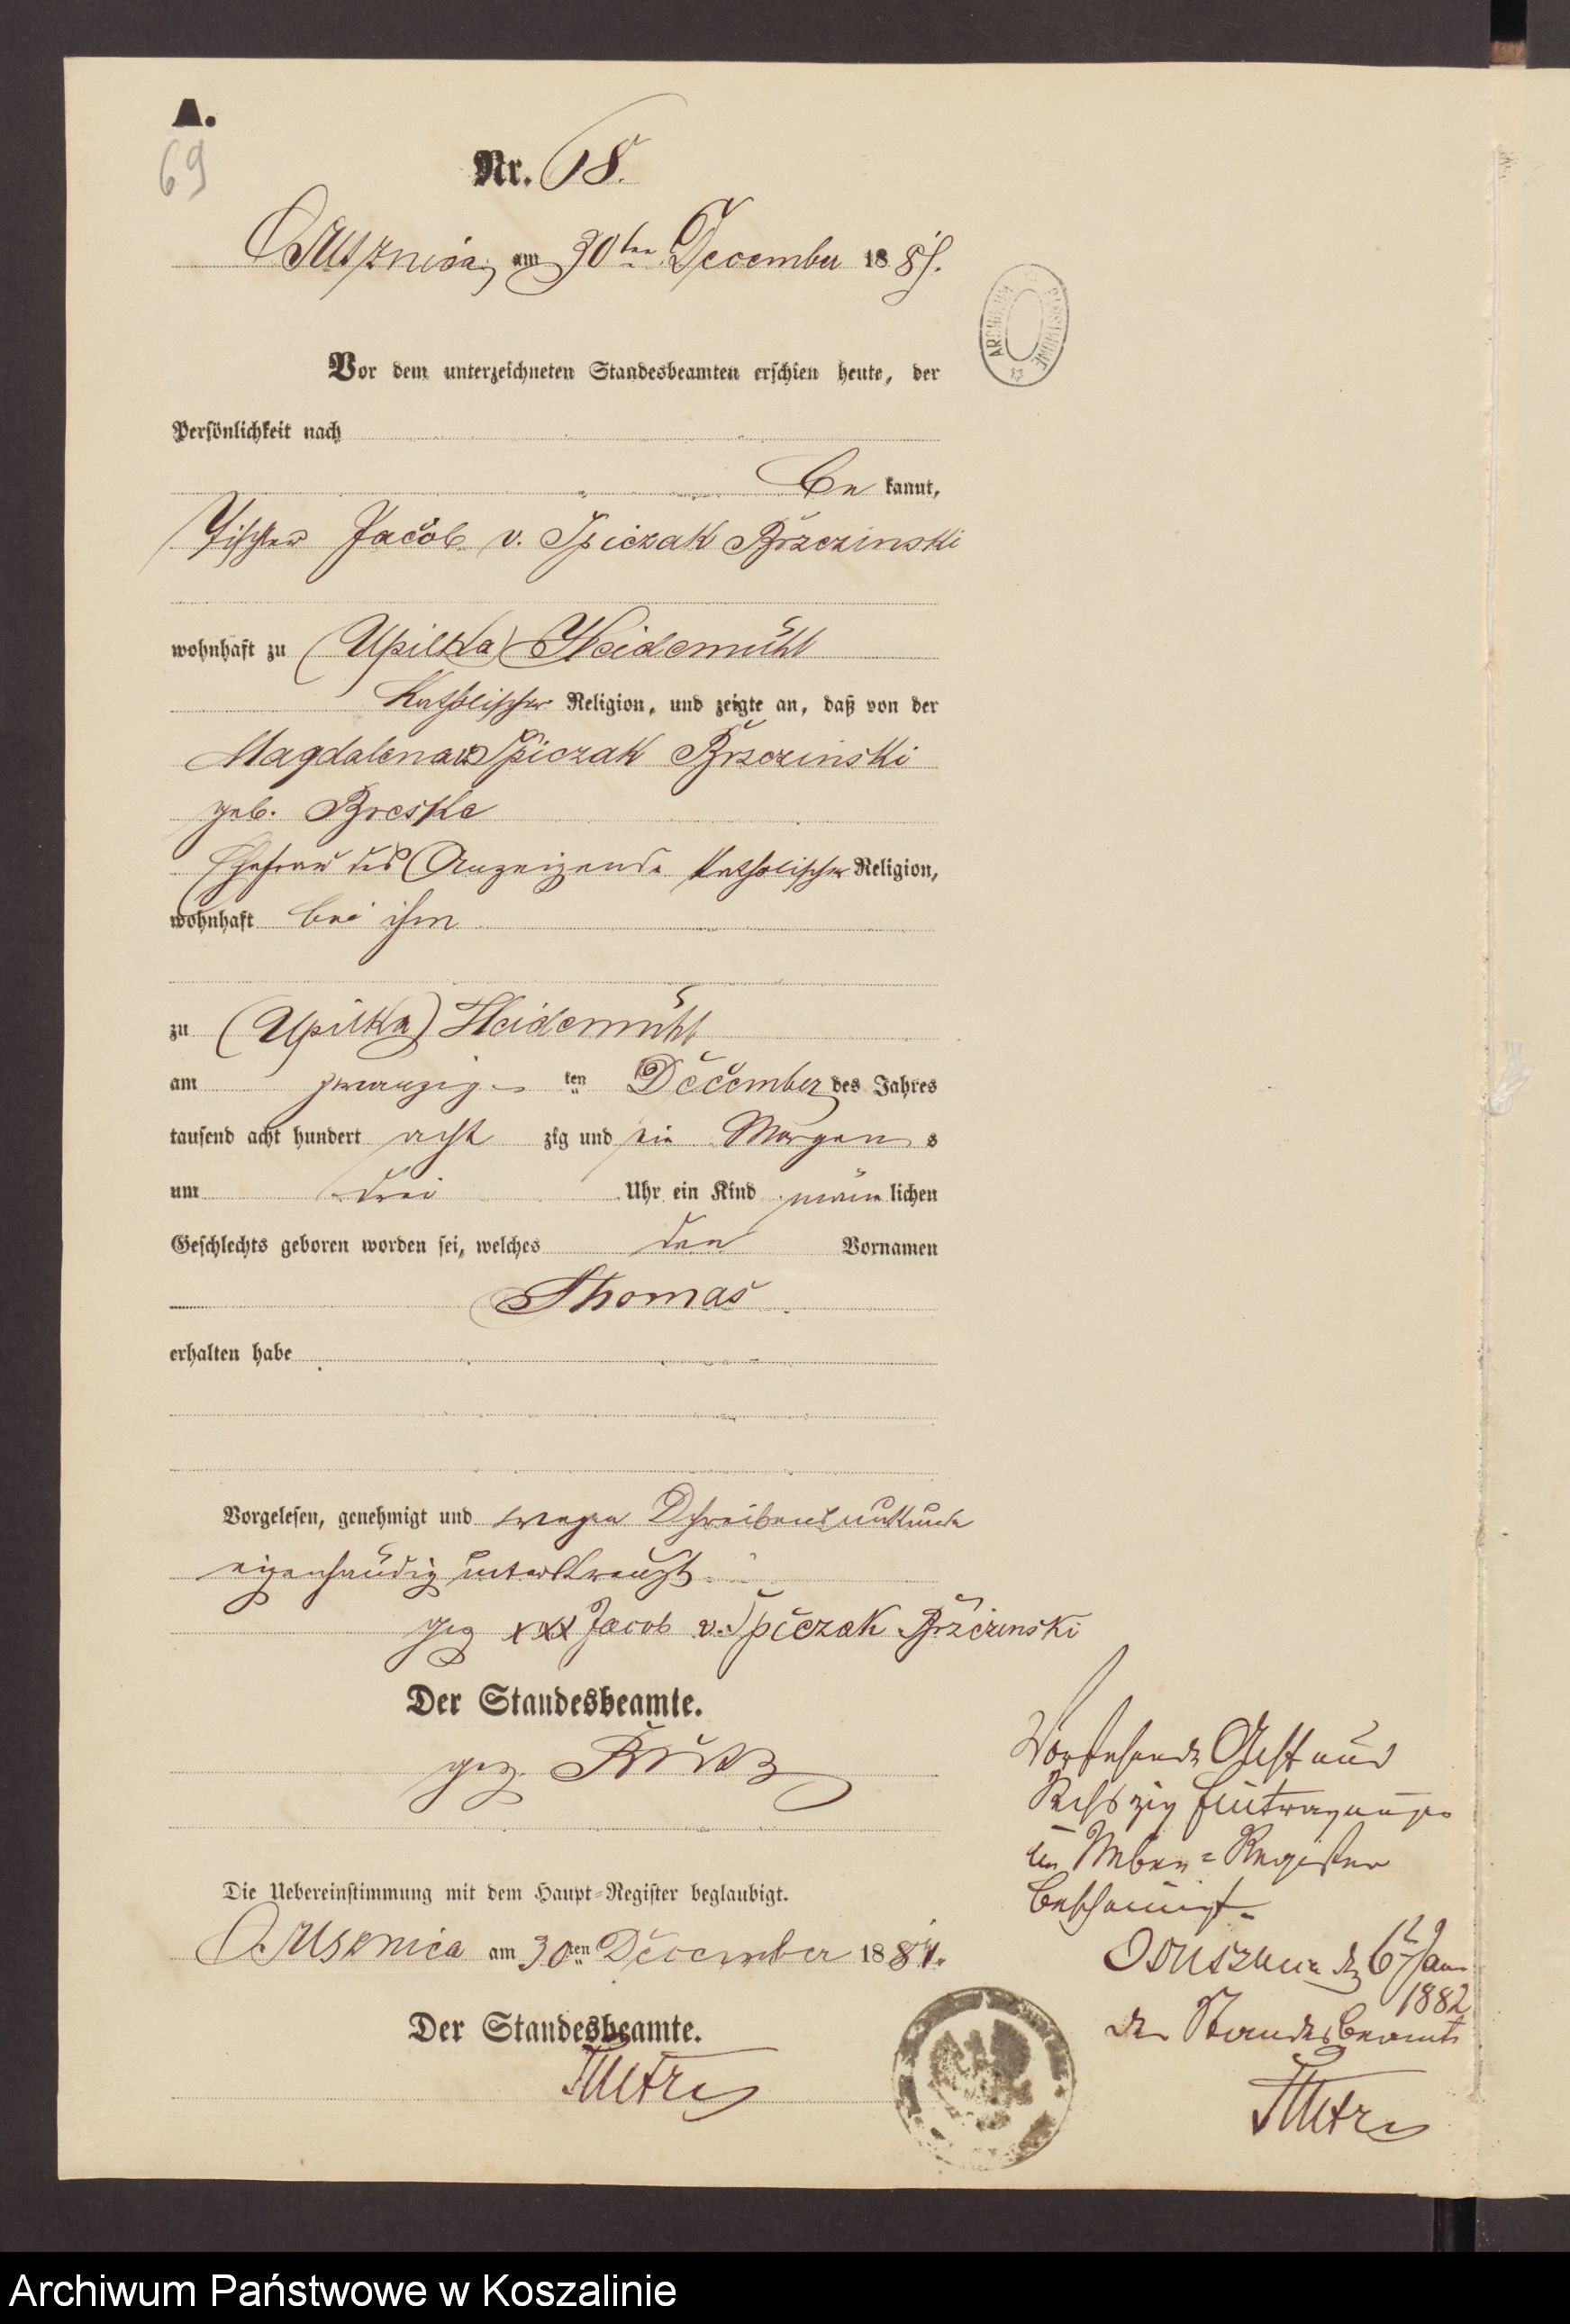 A.
69
Nr. 68.
Ossusznica, am 30ten December 1881.
Vor dem unterzeichneten Standesbeamten erschien heute, der
Persönlichkeit nach
be kannt,
Jacob v. Spiczak Brzezinski
wohnhaft zu (Upilka) Heidemühl
Katholischer Religion, und zeigte an, daß von der
Magdalena v. Spiczak Brzezinski
geb. Breske
Ehefrau des Anzeigende Katholischer Religion,
wohnhaft bei ihm
zu (Upilka) Heidemühl
am zwanzig ten December des Jahres
tausend acht hundert acht zig und ein Morgen s
um drei Uhr ein Kind männ lichen
Geschlechts geboren worden sei, welches den Vornamen
Thomas
erhalten habe
Vorgelesen, genehmigt und wegen Schreibensunkunde
eigenhändig unterkreuzt.
gez xxx Jacob v. Spiczak Brzezinski
Der Standesbeamte.
gez.
Die Uebereinstimmung mit dem Haupt-Register beglaubigt.
Ossusznica am 30ten December 1881.
Der Standesbeamte.
Vorstehende Acht und
Sechszig Eintragungen
im Neben-Register
bescheinigt.
Ossusznica den 6t Jan
1882
Der Standesbeamte
ARCHIWUM PAŃSTWOWE
Archiwum Państwowe w Koszalinie